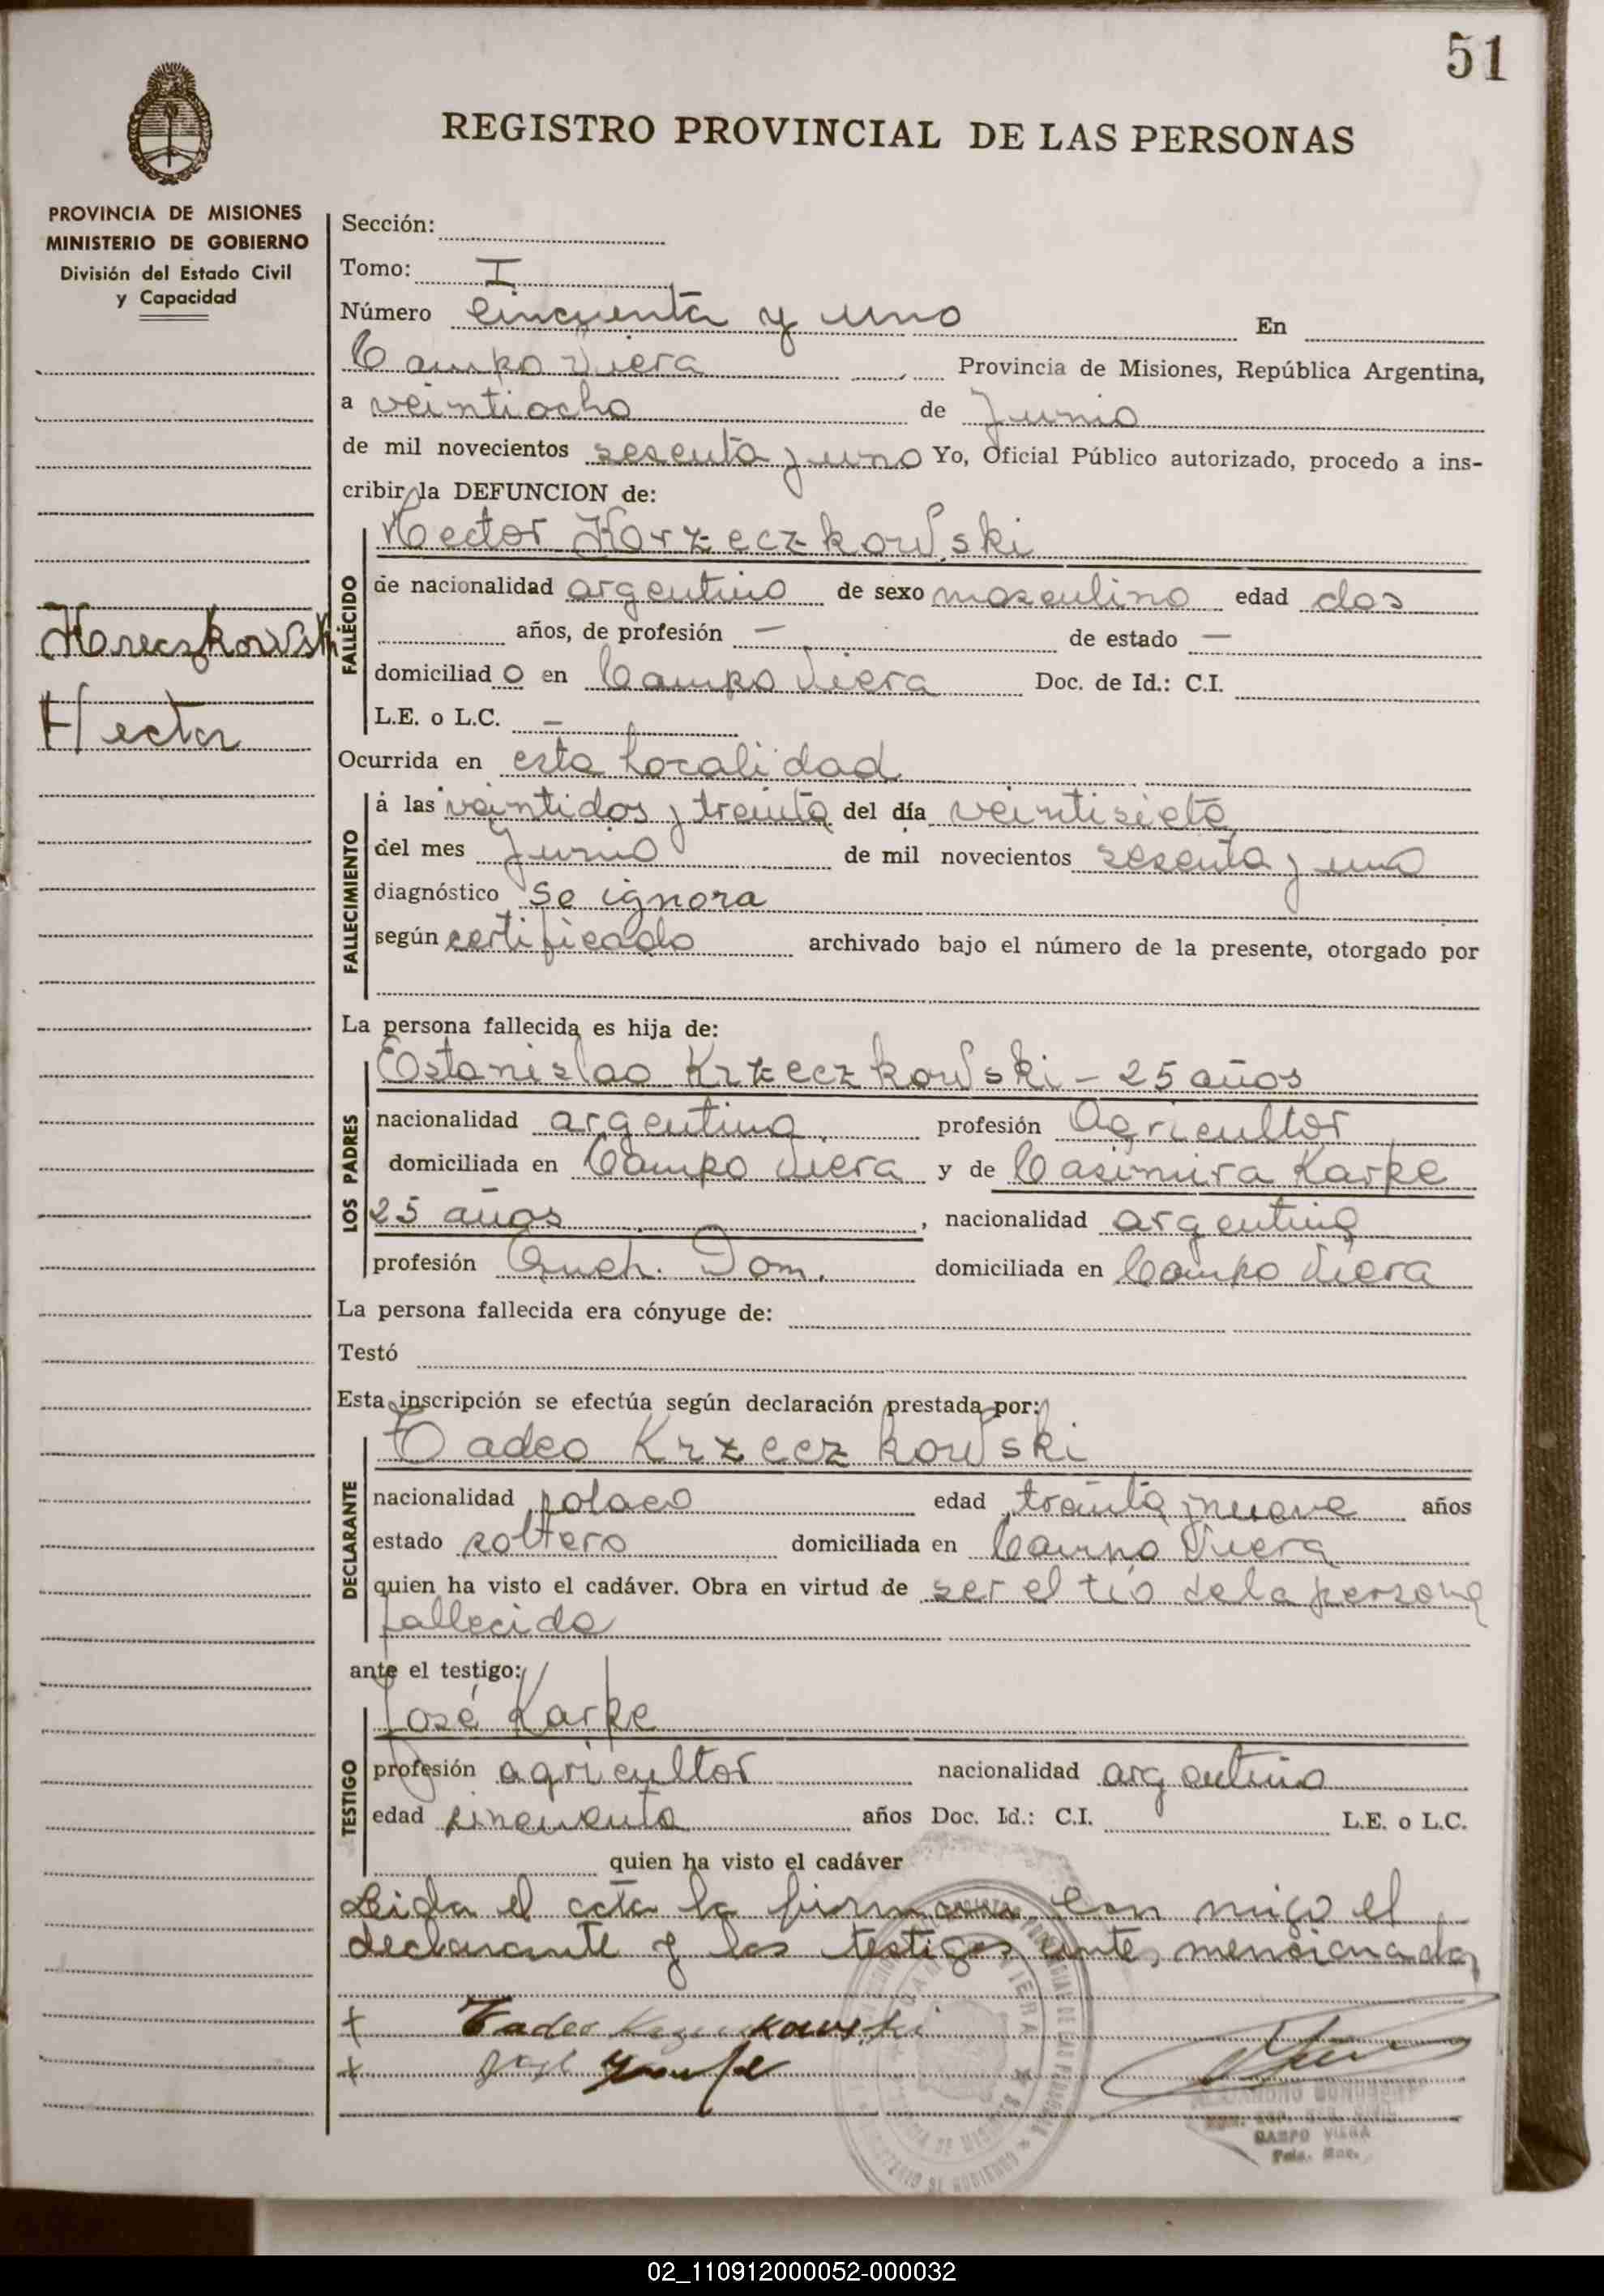 51
REGISTRO PROVINCIAL DE LAS PERSONAS
PROVINCIA DE MISIONES
MINISTERIO DE GOBIERNO
División del Estado Civil
y Capacidad
Hereczkowski
Hector
Sección:
Tomo: I
Número Cincuenta y uno En
Campo Viera Provincia de Misiones, República Argentina,
a veintiocho de Junio
de mil novecientos sesenta y uno Yo, Oficial Público autorizado, procedo a ins-
cribir la DEFUNCION de:
FALLECIDO
Hector Korzeczkowski
de nacionalidad argentino de sexo masculino edad dos
años, de profesión — de estado —
domiciliad o en Campo Viera Doc. de Id.: C.I.
L.E. o L.C. —
Ocurrida en esta Localidad
FALLECIMIENTO
á las veintidos y treinta del día veintisiete
del mes Junio de mil novecientos sesenta y uno
diagnóstico Se ignora
según certificado archivado bajo el número de la presente, otorgado por
La persona fallecida es hija de:
LOS PADRES
Estanislao Krzeczkowski - 25 años
nacionalidad argentina profesión Agricultor
domiciliada en Campo Viera y de Casimira Karpe
25 años, nacionalidad argentina
profesión Queh. Dom. domiciliada en Campo Viera
La persona fallecida era cónyuge de:
Testó
Esta inscripción se efectúa según declaración prestada por:
DECLARANTE
Tadeo Krzeczkowski
nacionalidad polaco edad treinta y nueve años
estado soltero domiciliada en Campo Viera
quien ha visto el cadáver. Obra en virtud de ser el tío de la persona
fallecida
ante el testigo:
TESTIGO
José Karpe
profesión agricultor nacionalidad argentino
edad cincuenta años Doc. Id.: C.I. L.E. o L.C.
quien ha visto el cadáver
Leida el acta la firmaron con migo el
declarante y los testigos ante, mencionado,
+ Tadeo
+
CAMPO VIERA
02_110912000052-000032